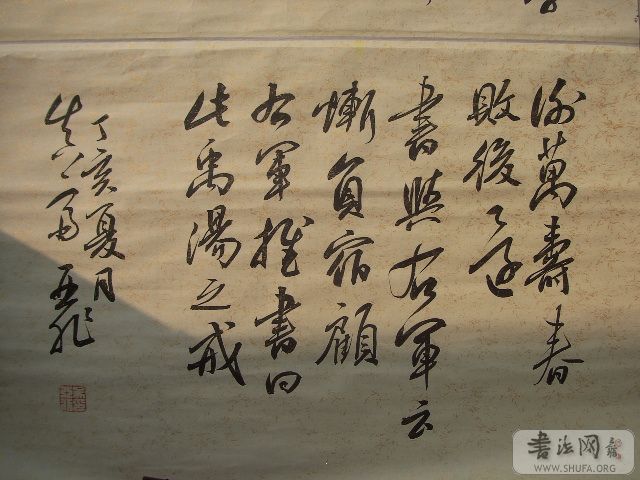 謝萬壽春
敗後還
書與右軍云
慚負宿顧
右軍推書曰
此禹湯之戒
丁亥夏月
書法网
WWW.SHUFA.ORG